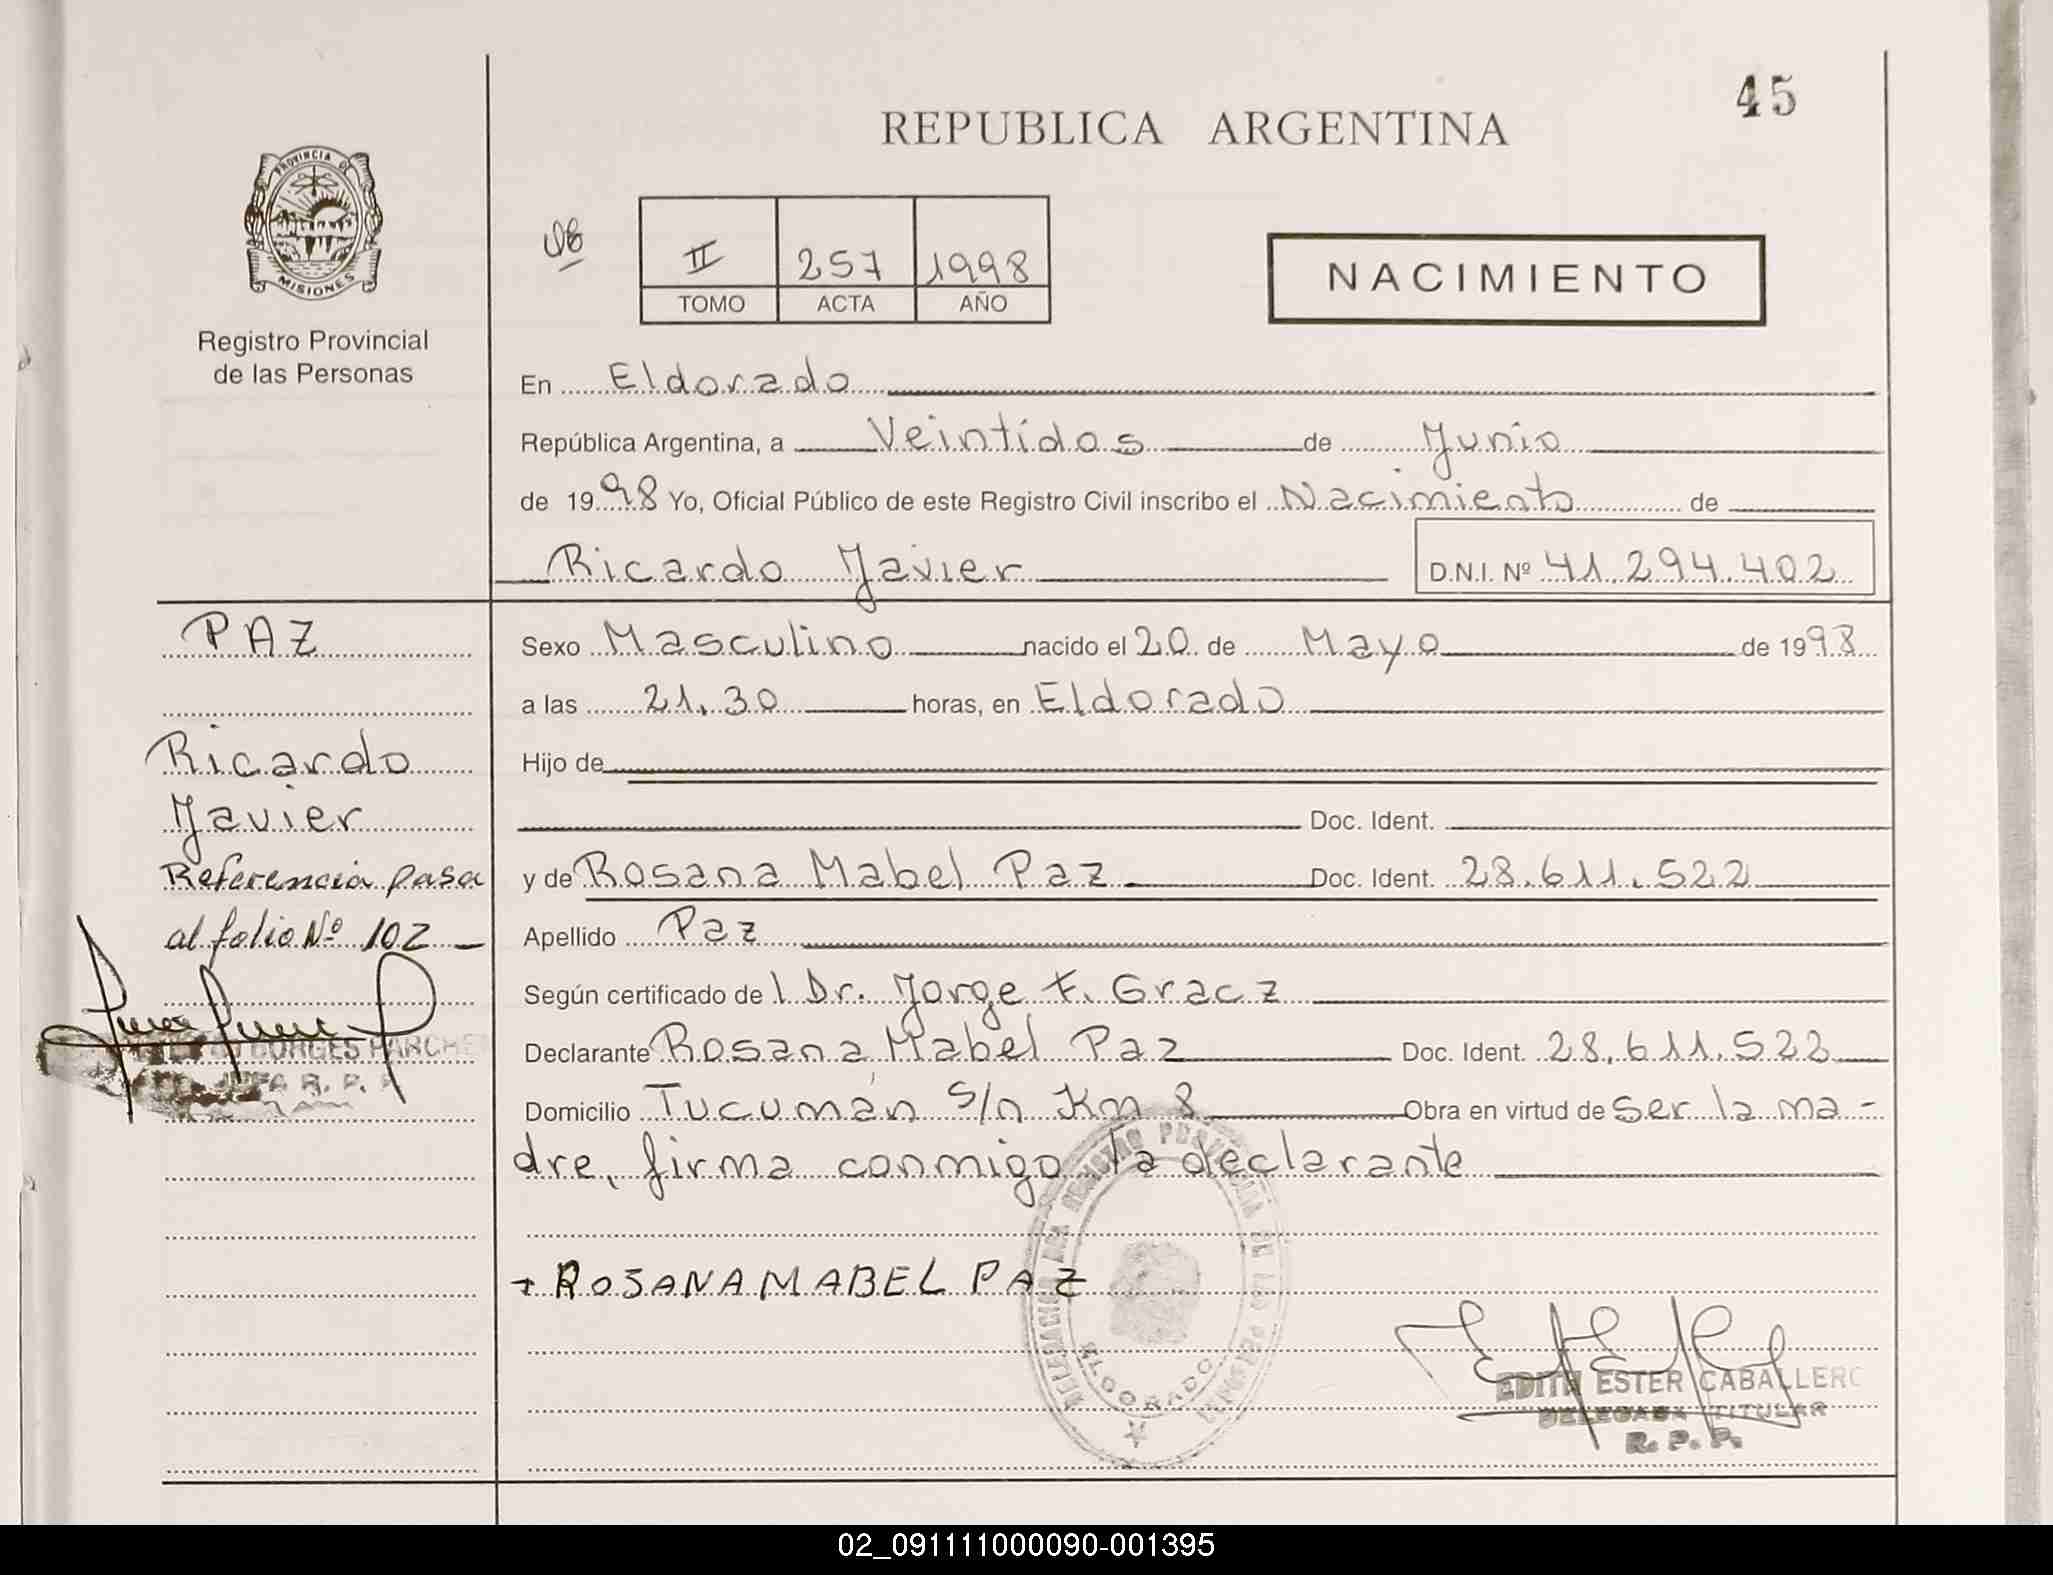 45
REPUBLICA ARGENTINA
PROVINCIA DE
MISIONES
Registro Provincial
de las Personas
II 257 1998
TOMO ACTA AÑO
NACIMIENTO
En Eldorado
República Argentina, a Veintidos de Junio
de 1998 Yo, Oficial Público de este Registro Civil inscribo el Nacimiento de
Ricardo Javier D.N.I. Nº 41.294.402
PAZ
Ricardo
Javier
Referencia pasa
al folio Nº 102
BORGES PARCHE
JEFA R. P. P.
Sexo Masculino nacido el 20 de Mayo de 1998
a las 21.30 horas, en Eldorado
Hijo de
Doc. Ident.
y de Rosana Mabel Paz Doc. Ident. 28.611.522
Apellido Paz
Según certificado del Dr. Jorge F. Gracz
Declarante Rosana Mabel Paz Doc. Ident. 28.611.522
Domicilio Tucumán S/n Km 8 Obra en virtud de ser la ma-
dre, firma conmigo la declarante
ROSANA MABEL PAZ
ELDORADO
EDITH ESTER CABALLERO
DELEGADA TITULAR
R. P. P.
02_091111000090-001395